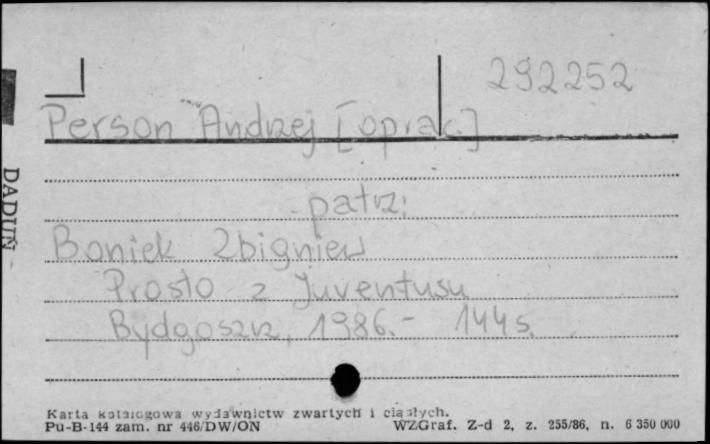 292252
Person Andrzej [oprac.]
patrz:
Boniek Zbigniew
Prosto z Juventusu
Bydgoszcz, 1986.- 144 s.
DADUŃ-
Karta katalogowa wydawnictw zwartych i ciągłych.
Pu-B-144 zam. nr 446/DW/ON WZGraf. Z-d 2, z. 255/86, n. 6 350 000